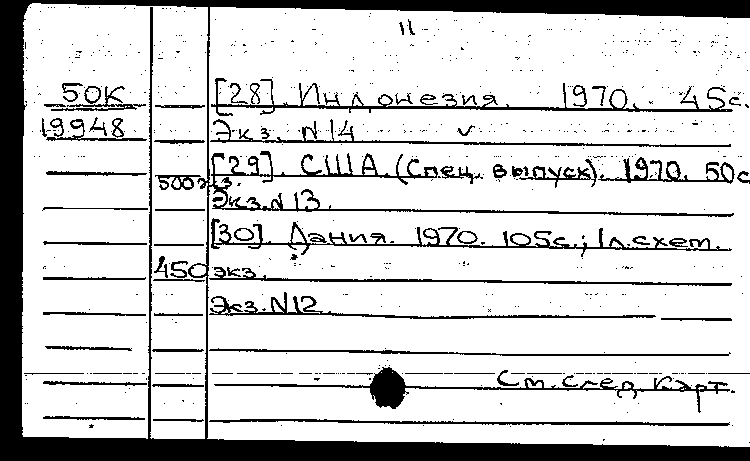 11
50К [28]. Индонезия. 1970. 45с.
19948 Экз. N14
[29]. США. (Спец. выпуск). 1970. 50с
500экз.
Экз.N13.
[30]. Дания. 1970. 105с.; 1л.схем.
450экз.
Экз.N12.
См.след.карт.